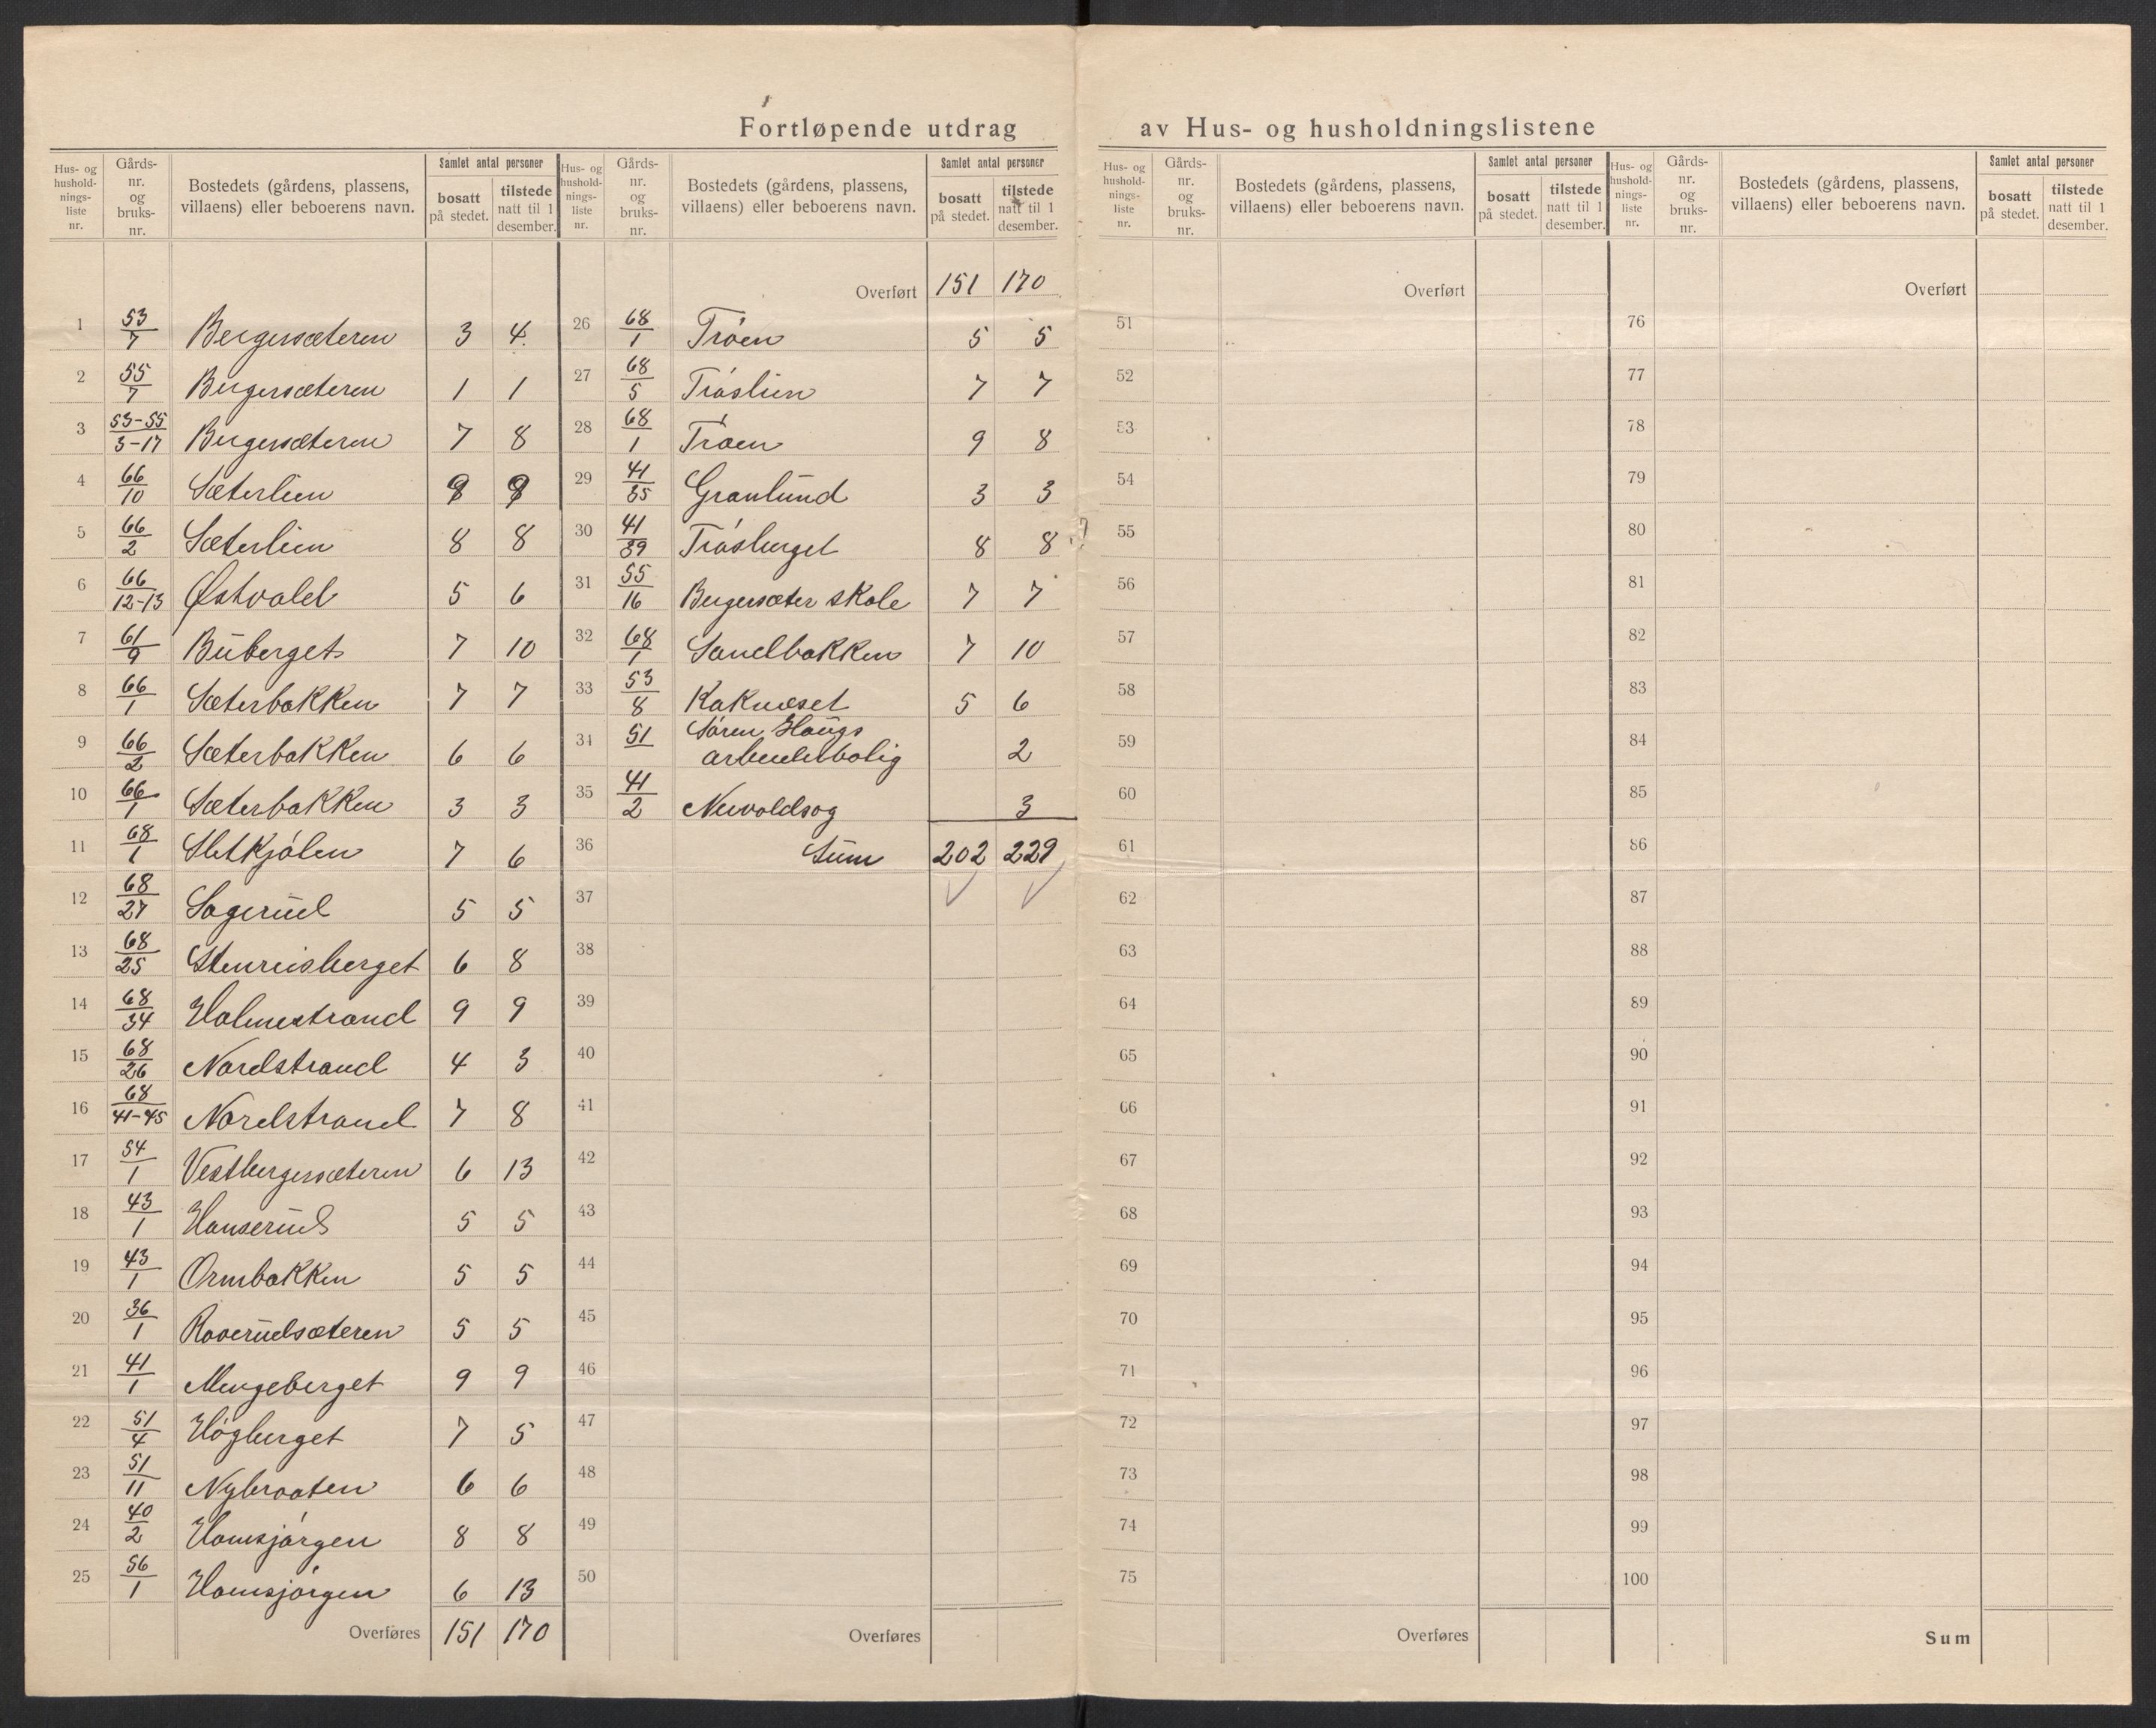 Fortløpende utdrag av Hus- og husholdningslistene
Hus- og hushold-nings-liste nr. | Gårds-nr. og bruks-nr. | Bostedets (gårdens, plassens, villaens) eller beboerens navn. | Samlet antal personer | bosatt på stedet. | tilstede natt til 1 desember.
1 53/7 Bergersæteren 3 4
2 55/7 Bergersæteren 1 1
3 53-55/3-17 Bergersæteren 7 8
4 66/10 Sæterlien 9 9
5 66/2 Sæterlien 8 8
6 66/12-13 Østvold 5 6
7 61/9 Buberget 7 10
8 66/1 Sæterbakken 7 7
9 66/2 Sæterbakken 6 6
10 66/1 Sæterbakken 3 3
11 68/1 Sletkjölen 7 6
12 68/27 Sagerud 5 5
13 68/25 Stenreisberget 6 8
14 68/34 Holmestrand 9 9
15 68/26 Nordstrand 4 3
16 68/41-45 Nordstrand 7 8
17 54/1 Vestbergersæteren 6 13
18 43/1 Hanserud 5 5
19 43/1 Ormbakken 5 5
20 36/1 Roverudsæteren 5 5
21 41/1 Mengeberget 9 9
22 51/4 Högberget 7 5
23 51/11 Nybraaten 6 6
24 40/2 Hamsjörgen 8 8
25 56/1 Hamsjörgen 6 13
Overføres 151 170
Hus- og hushold-nings-liste nr. | Gårds-nr. og bruks-nr. | Bostedets (gårdens, plassens, villaens) eller beboerens navn. | Samlet antal personer | bosatt på stedet. | tilstede natt til 1 desember.
Overført 151 170
26 68/1 Tröen 5 5
27 68/5 Tröslien 7 7
28 68/1 Tröen 9 8
29 41/35 Granlund 3 3
30 41/39 Trösberget 8 8
31 55/16 Bergersæter skole 7 7
32 68/1 Sandbakken 7 10
33 53/8 Kaknæset 5 6
34 51 Sören Haugs
arbeiderbolig 2
35 41/2 3
36 Sum 202 229
37
38
39
40
41
42
43
44
45
46
47
48
49
50
Overføres
Hus- og hushold-nings-liste nr. | Gårds-nr. og bruks-nr. | Bostedets (gårdens, plassens, villaens) eller beboerens navn. | Samlet antal personer | bosatt på stedet. | tilstede natt til 1 desember.
Overført
51
52
53
54
55
56
57
58
59
60
61
62
63
64
65
66
67
68
69
70
71
72
73
74
75
Overføres
Hus- og hushold-nings-liste nr. | Gårds-nr. og bruks-nr. | Bostedets (gårdens, plassens, villaens) eller beboerens navn. | Samlet antal personer | bosatt på stedet. | tilstede natt til 1 desember.
Overført
76
77
78
79
80
81
82
83
84
85
86
87
88
89
90
91
92
93
94
95
96
97
98
99
100
Sum